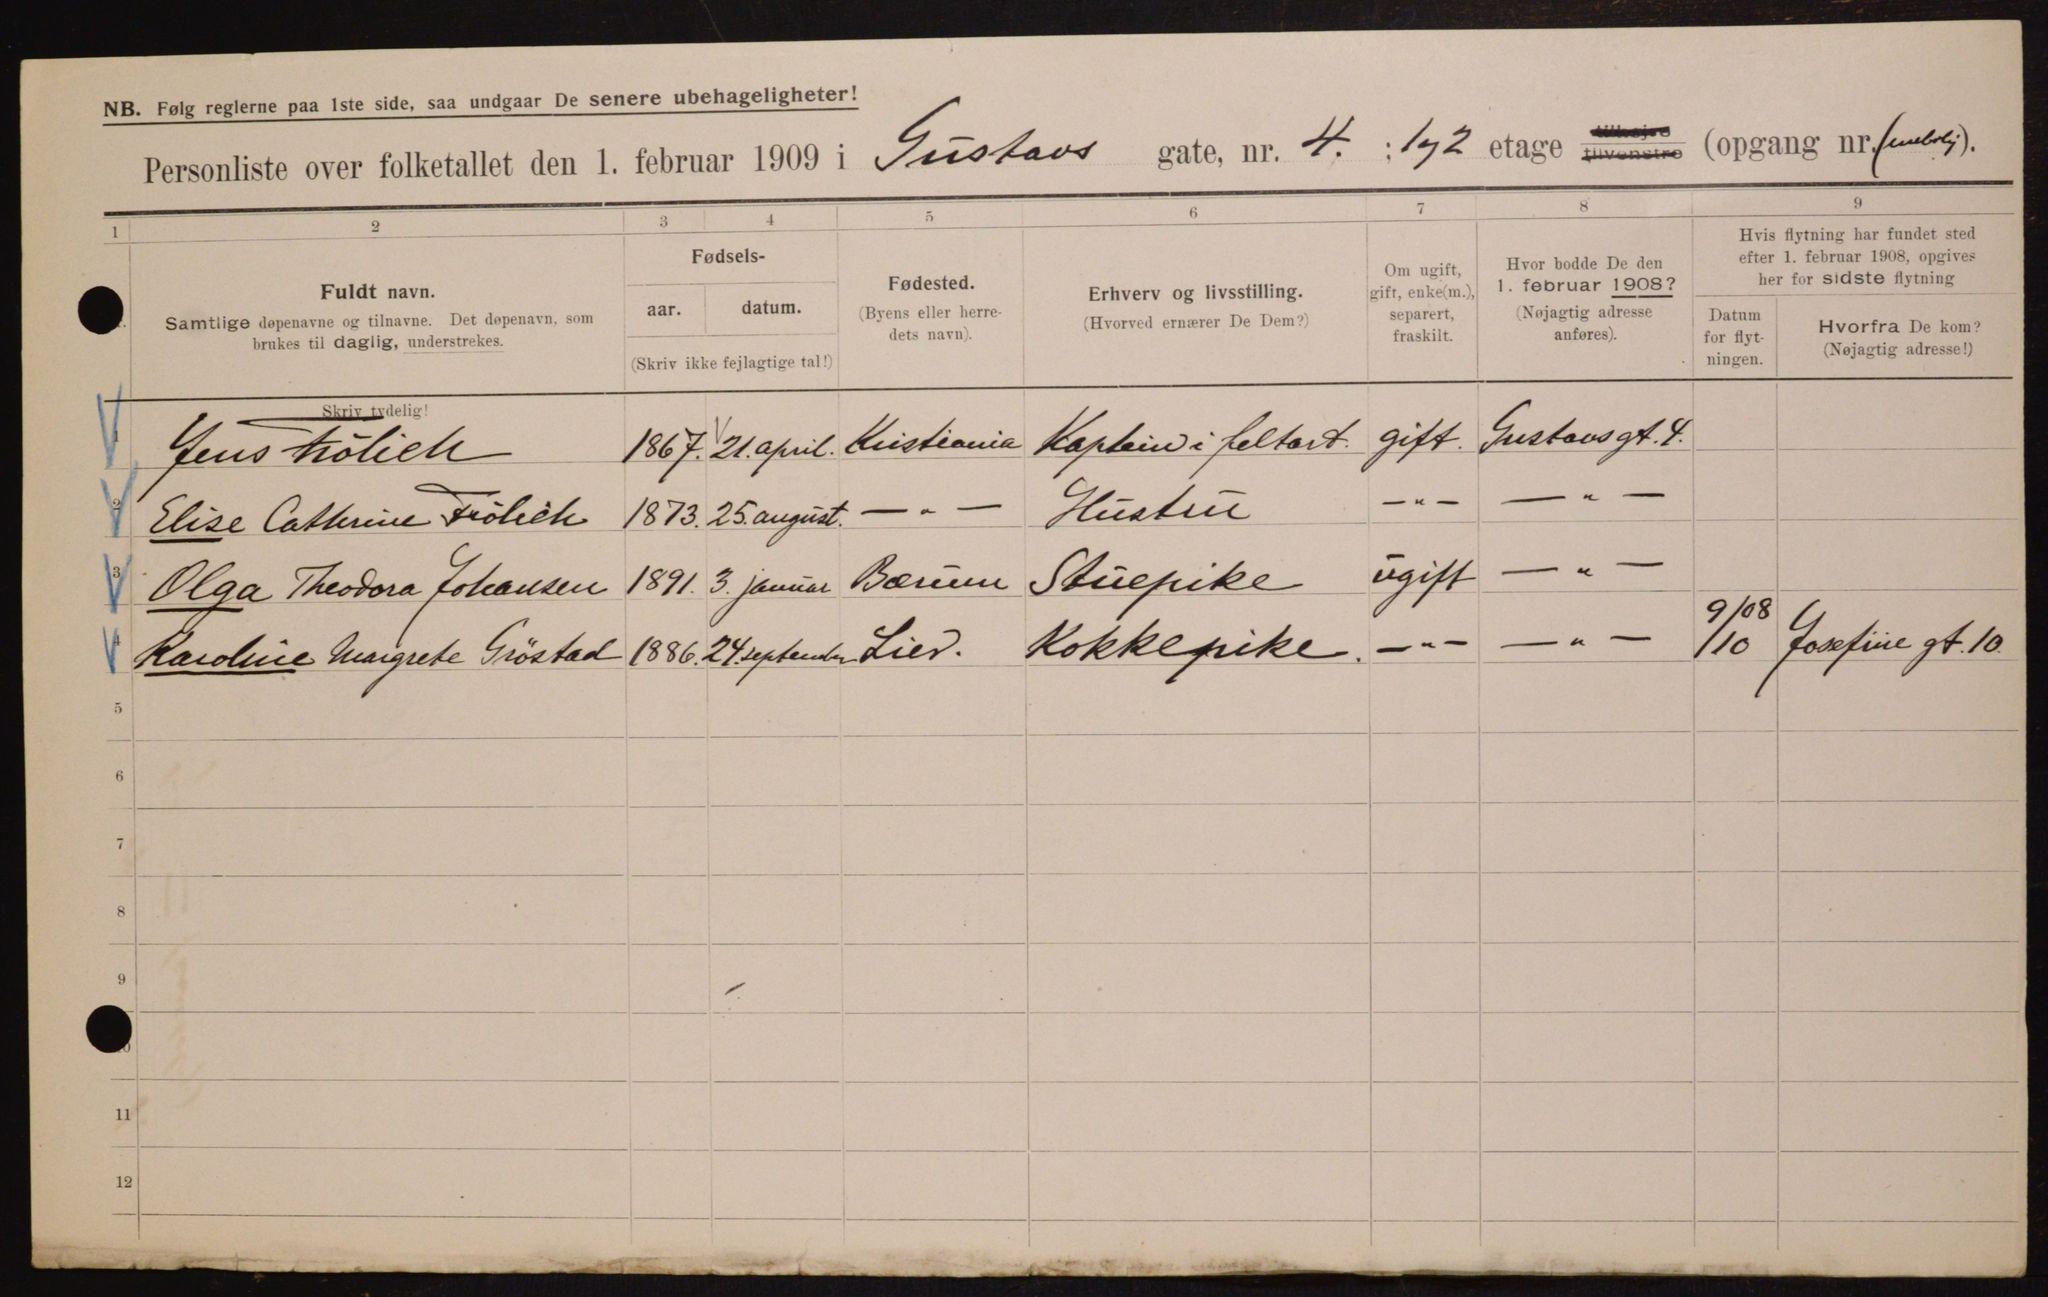 NB. Følg reglerne paa 1ste side, saa undgaar De senere ubehageligheter!
Personliste over folketallet den 1. februar 1909 i Gustavs gate, nr. 4. ; 1 og 2 etage tilhøjre tilvenstre (opgang nr. ).
1 2 3 4 5 6 7 8 9
Fuldt navn.
Samtlige døpenavne og tilnavne. Det døpenavn, som
brukes til daglig, understrekes.
Skriv tydelig!
Fødsels-
aar. datum.
(Skriv ikke fejlagtige tal!)
Fødested.
(Byens eller herre-
dets navn).
Erhverv og livsstilling.
(Hvorved ernærer De Dem?)
Om ugift,
gift, enke(m.),
separert,
fraskilt.
Hvor bodde De den
1. februar 1908?
(Nøjagtig adresse
anføres).
Hvis flytning har fundet sted
efter 1. februar 1908, opgives
her for sidste flytning
Datum
for flyt-
ningen.
Hvorfra De kom?
(Nøjagtig adresse!)
1 Jens Frölich 1867. 21. april. Kristiania Kaptein i feltart. gift. Gustavsgt. 4.
2 Elise Cathrine Frölich 1873. 25. august. — „ — Hustru — „ — — „ —
3 Olga Theodora Johansen 1891. 3. januar Bærum Stuepike ugift — „ —
4 Karoline Margrete Gröstad 1886. 24. september Lier. Kokkepike. — „ — — „ — 9/08 /10 Josefine gt. 10.
5
6
7
8
9
10
11
12